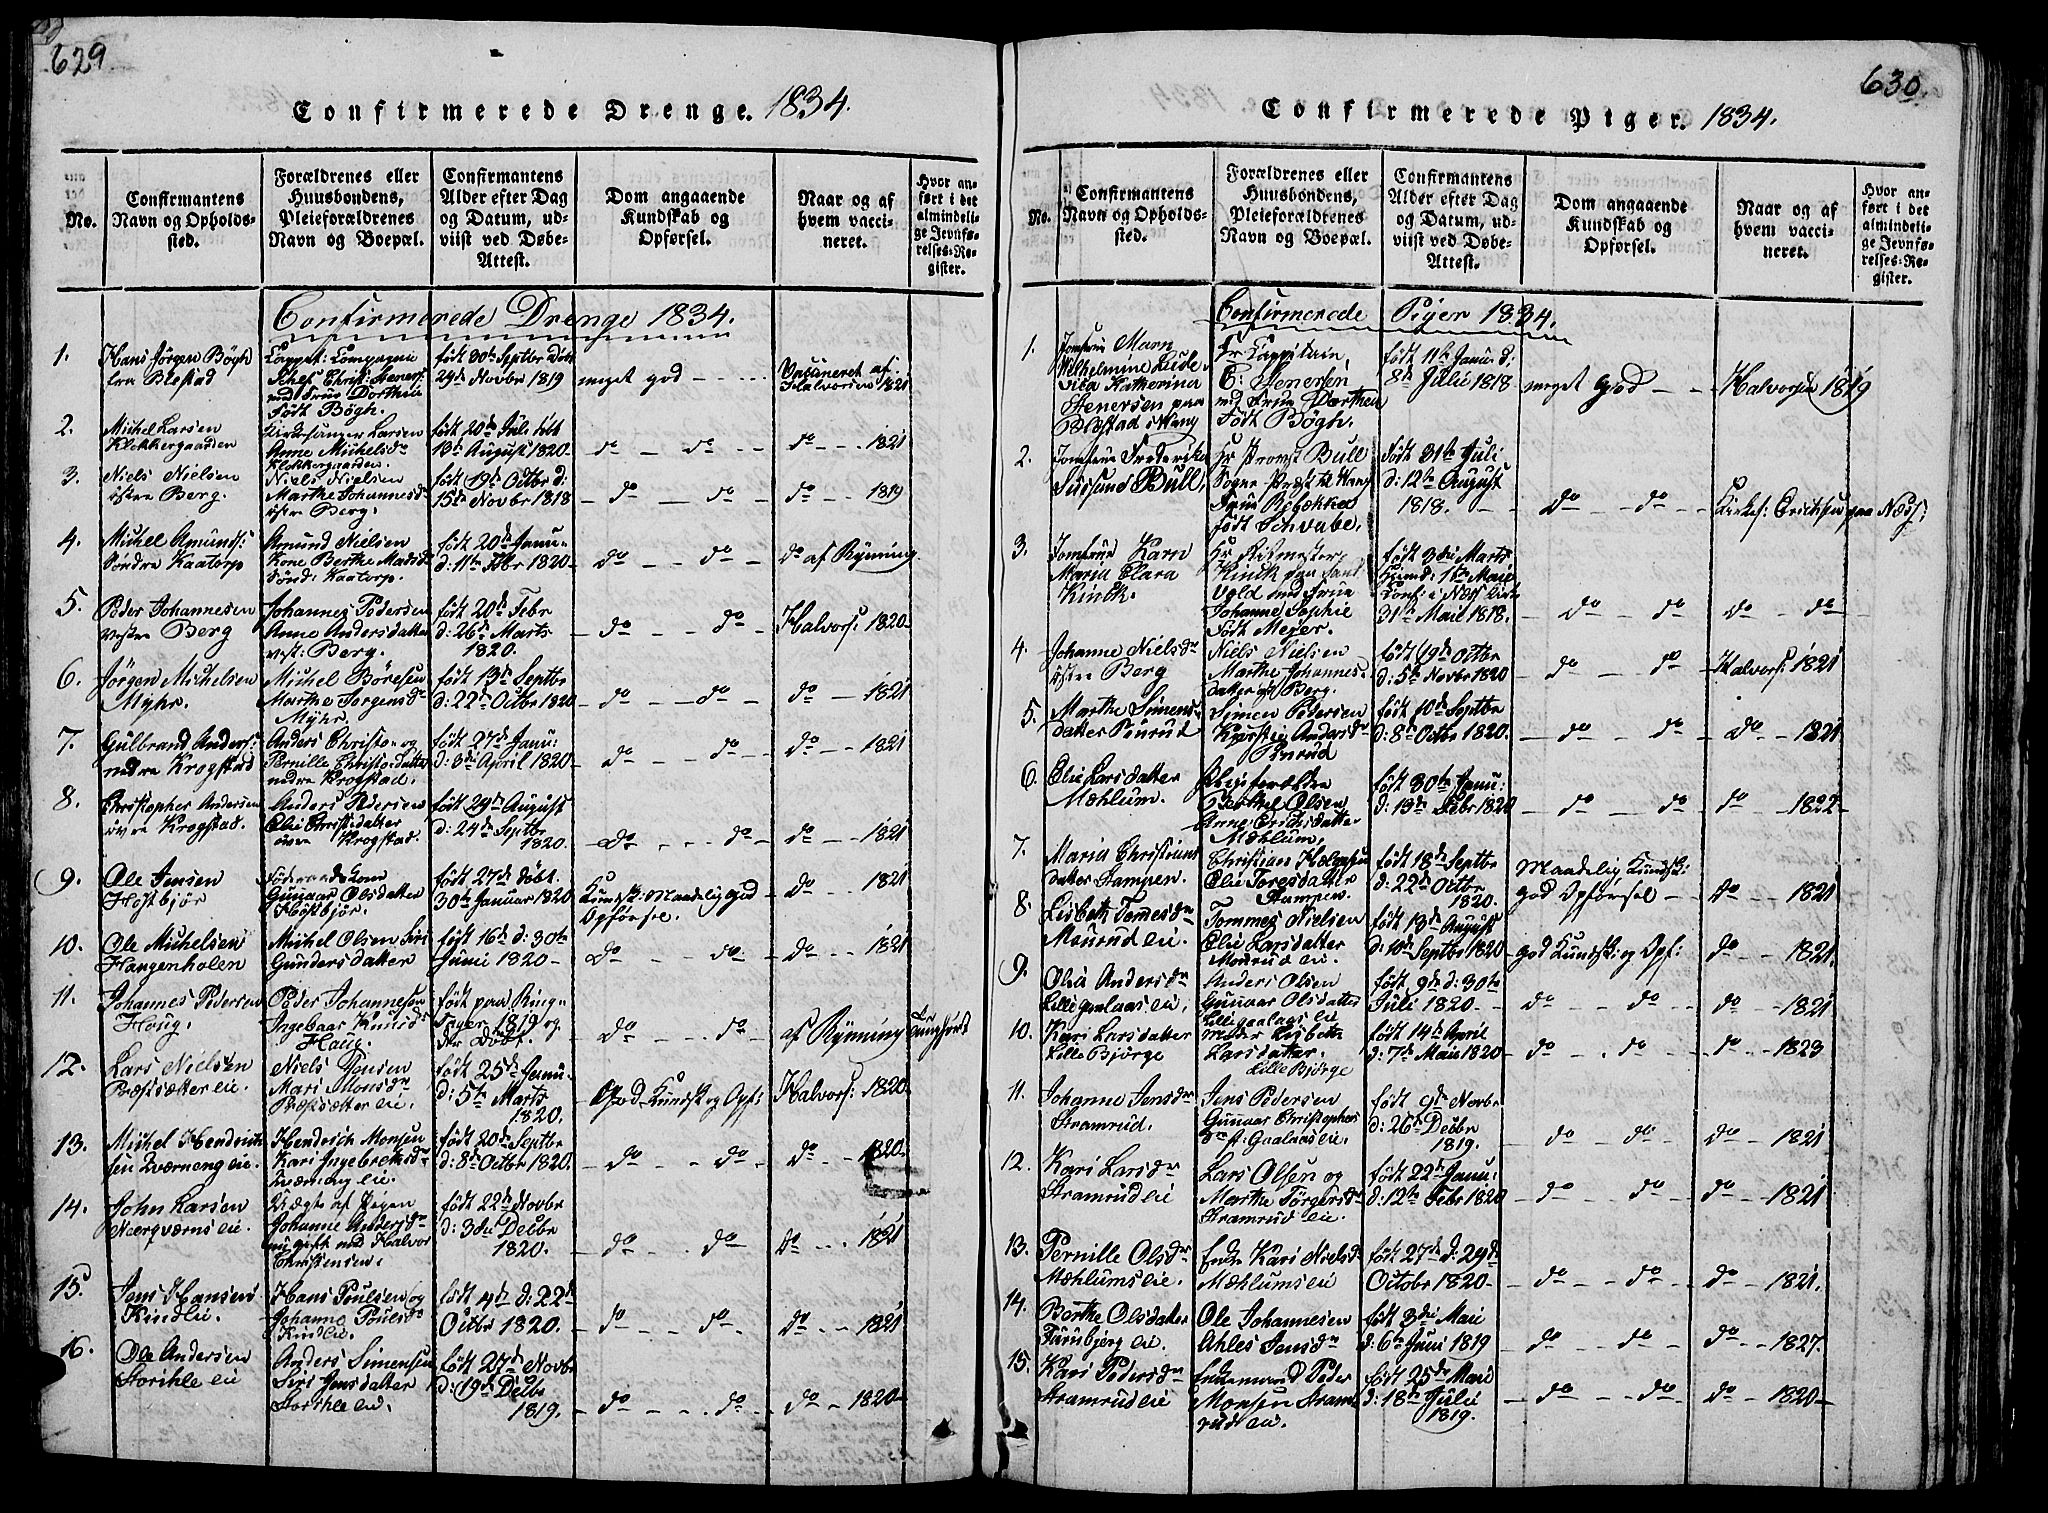 629
Confirmerede Drenge. 1834.
No.
Confirmantens
Navn og Opholds-
sted.
Forældrenes eller
Huusbondens,
Pleieforældrenes
Navn og Boepæl.
Confirmantens
Alder efter Dag
og Datum, ud-
viist ved Døbe-
Attest.
Dom angaaende
Kundskab og
Opførsel.
Naar og af
hvem vacci-
neret.
Hvor an-
ført i det
almindeli-
ge Jevnfø-
relses-Re-
gister.
Confirmerede Drenge 1834.
1.
Hans Jørgen Bøgh
Blestad
Compagnie
Schef Christ: Steners:
med Frue Dorthea
Født Bøgh.
født 30te Septbr døbt
24de Novbr 1819
meget god
Vaccineret af
Halvorsen 1821
2.
Michel Larsen
Klokkergaarden
Kirkesanger Larsen
Anne Michelsdr
Klokkergaarden.
født 20de Juli døbt
19de August 1820
do do
do 1821
3.
Niels Nielsen
østre Berg.
Niels Nielsen
Marthe Johannesdr
østre Berg.
født 19de Octbr d:
15de Novbr 1818
do do
do 1819
4.
Michel Amunds:
Søndre Kaatorp
Amund Nielsen
Kone Berthe Madsdr
Sønd: Kaatorp.
født 20de Janu-
d: 11te Febr 1820
do do
do af Ryning
5.
Peder Johannesen
vestre Berg
Johannes Pedersen
Anne Andersdatter
vest: Berg.
født 20de Febr
d: 26de Marts
1820.
do do
Halvors: 1820
6.
Jørgen Michelsen
Myhr.
Michel Børesen
Marthe Jørgensdr
Myhr.
født 13de Septbr
d: 22de Octbr 1820
do do
do 1821
7.
Gulbrand Anders:
nedre Krogstad
Anders Christo- og
Pernille Christo:datter
nedre Krogstad.
født 27de Janu:
d: 3die April 1820
do do
do 1821
8.
Christopher Andersen
øvre Krogstad.
Anders Pedersen
Elie Christ:datter
øvre Krogstad.
født 29de August
d: 24de Septbr
1820.
do do
do 1821
9.
Ole Jensen
Høstbjør
Gunaar Olsdatter
Høstbjør.
født 27de døbt
30te Januar 1820
Kundsk: Maadelig God
Opførsel.
do 1821
10.
Ole Michelsen
Haugenholen
Michel Olsen Siri
Gundersdatter
født 16de d: 30te
Junii 1820
do do
do 1821
11.
Johannes Pedersen
Houg.
Peder Johannesen
Ingebaar Knudsdr
Haug.
født paa Ring-
1819 og
der Døbt.
do do
af Ryning
12.
Lars Nielsen
Præstsætter eie.
Niels Joensen
Mari Monsdr
Præstsætter eie.
født 25de Janu:
d: 5te Marts
1820.
God Kundsk og Opf:
Halvors: 1820
13.
Michel Hendrich-
sen Qværneng eie.
Hendrich Monsen
Kari Ingebretsdr
Qværneng eie.
født 20de Septbr
d: 8de Octbr 1820.
do do
do 1820
14.
John Larsen
Nærqværns eie.
Uægte af Pigen
Johanne Andersdr
nu gift med Halvor
Christensen.
født 22de Novbr
d: 3die Decbr
1820.
do do
do 1821
15.
Jens Hansen
Kindlie.
Hans Poulsen og
Johanne Poulsdr
Kindlie.
født 4de d: 22de
Octbr 1820.
do do
do 1821
16.
Ole Andersen
Storihle eie
Anders Simensen
Siri Jensdatter
Storihle eie.
født 27de Novbr
d: 19de Decbr
1819.
do do
do 1820
630.
Confirmerede Piger. 1834.
No.
Confirmantens
Navn og Opholds-
sted.
Forældrenes eller
Huusbondens,
Pleieforældrenes
Navn og Boepæl.
Confirmantens
Alder efter Dag
og Datum, ud-
viist ved Døbe-
Attest.
Dom angaaende
Kundskab og
Opførsel.
Naar og af
hvem vacci-
neret.
Hvor an-
ført i det
almindeli-
ge Jevnfø-
relses-Re-
gister.
Confirmerede Piger 1834.
1.
Jomfrue Maren
Wilhelmine
Katherina
Stenersen paa
Blestad i Vang
Hr Cappitain
C: Stenersen
med Frue Dorthea
Født Bøgh.
født 11te Janu. d:
8de Julie 1818
meget God
Halvorsen 1819
2.
Jomfrue Frederikke
Bull,
Hr Provst Bull
Sogne Præst til Vang
Frue Rebækka
født Schvabe.
født 31te Juli
d: 12te August
1818.
do do
Kirkes: Erichsen paa Næss:
3.
Jomfrue Karn
Maria Clara
Kinck.
Hr Ritmester
Kinck paa
Vold med Frue
Johanne Sophie
født Meyer.
født 3die Marts
d: 1te Maii
i Næss Kirke
31te Maii 1818.
do do
do do
4.
Johanne Nielsdr
østre Berg
Niels Nielsen
Marthe Johannes-
datter øst Berg.
født 19de Octbr
d: 5te Novbr 1820
do do
Halvors: 1821
5.
Marthe Simens-
datter Pinrud
Simen Pedersen
Kjersti Andersdr
Pinrud
født 10de Septbr
d: 8de Octbr 1820.
do do
do 1821
6.
Elie Larsdatter
Mæhlum.
Pleiforældre
Berthel Olsen
Anne Erichsdatter
Mæhlum.
født 30te Janu:
d: 13de Febr 1820
do do
do 1822
7.
Maria Christians
datter Stampen.
Christian Helgesen
Elie Toresdatter
Stampen.
født 18de Septbr
d: 22de Octbr
1820.
Maadelig Kundsk:
god Opførsel
do 1821
8.
Lisbeth Tomesdr
Mourud eie.
Tommes Nielsen
Elie Larsdatter
Mourud eie.
født 13de August
d: 10de Septbr 1820
god Kundsk: og Opf:
do 1821.
9.
Olia Andersdr
Lille gaalaas eie.
Anders Olsen
Gunaar Olsdatter
Lille gaalaas eie
født 9de d: 30te
Juli 1820
do do
do 1821
10.
Kari Larsdatter
Lille Bjørge
Moder Lisbeth
Larsdatter.
Lille Bjørge
født 14de April
d: 7de Maii 1820
do do
do 1823
11.
Johanne Jensdr
Stramrud.
Jens Pedersen
Gunaar Christophers
dr st: Gaalaas eie.
født 9de Novbr
d: 26de Decbr
1819.
do do
do 1821
12.
Kari Larsdr
Stramrud eie
Lars Olsen og
Marthe Tørgersdr
Stramrud eie.
født 22de Janu:
d: 12te Febr 1820
do do
do 1821
13.
Pernille Olsdr
Mæhlums eie.
Enke Kari Nielsdr
Mæhlums eie
født 27de d: 29de
Octobr 1820
do do
do 1821.
14.
Berthe Olsdatter
Furubjerg eie.
Ole Johannesen
Ahles Jensdr
født 3die Maii
d: 6te Juni 1819
do do
do 1827.
15.
Kari Pedersdr
Stramrud eie
Enkemand Peder
Monsen Stram-
rud eie.
født 25de Maii
d: 18de Julii
1819.
do do
do 1820